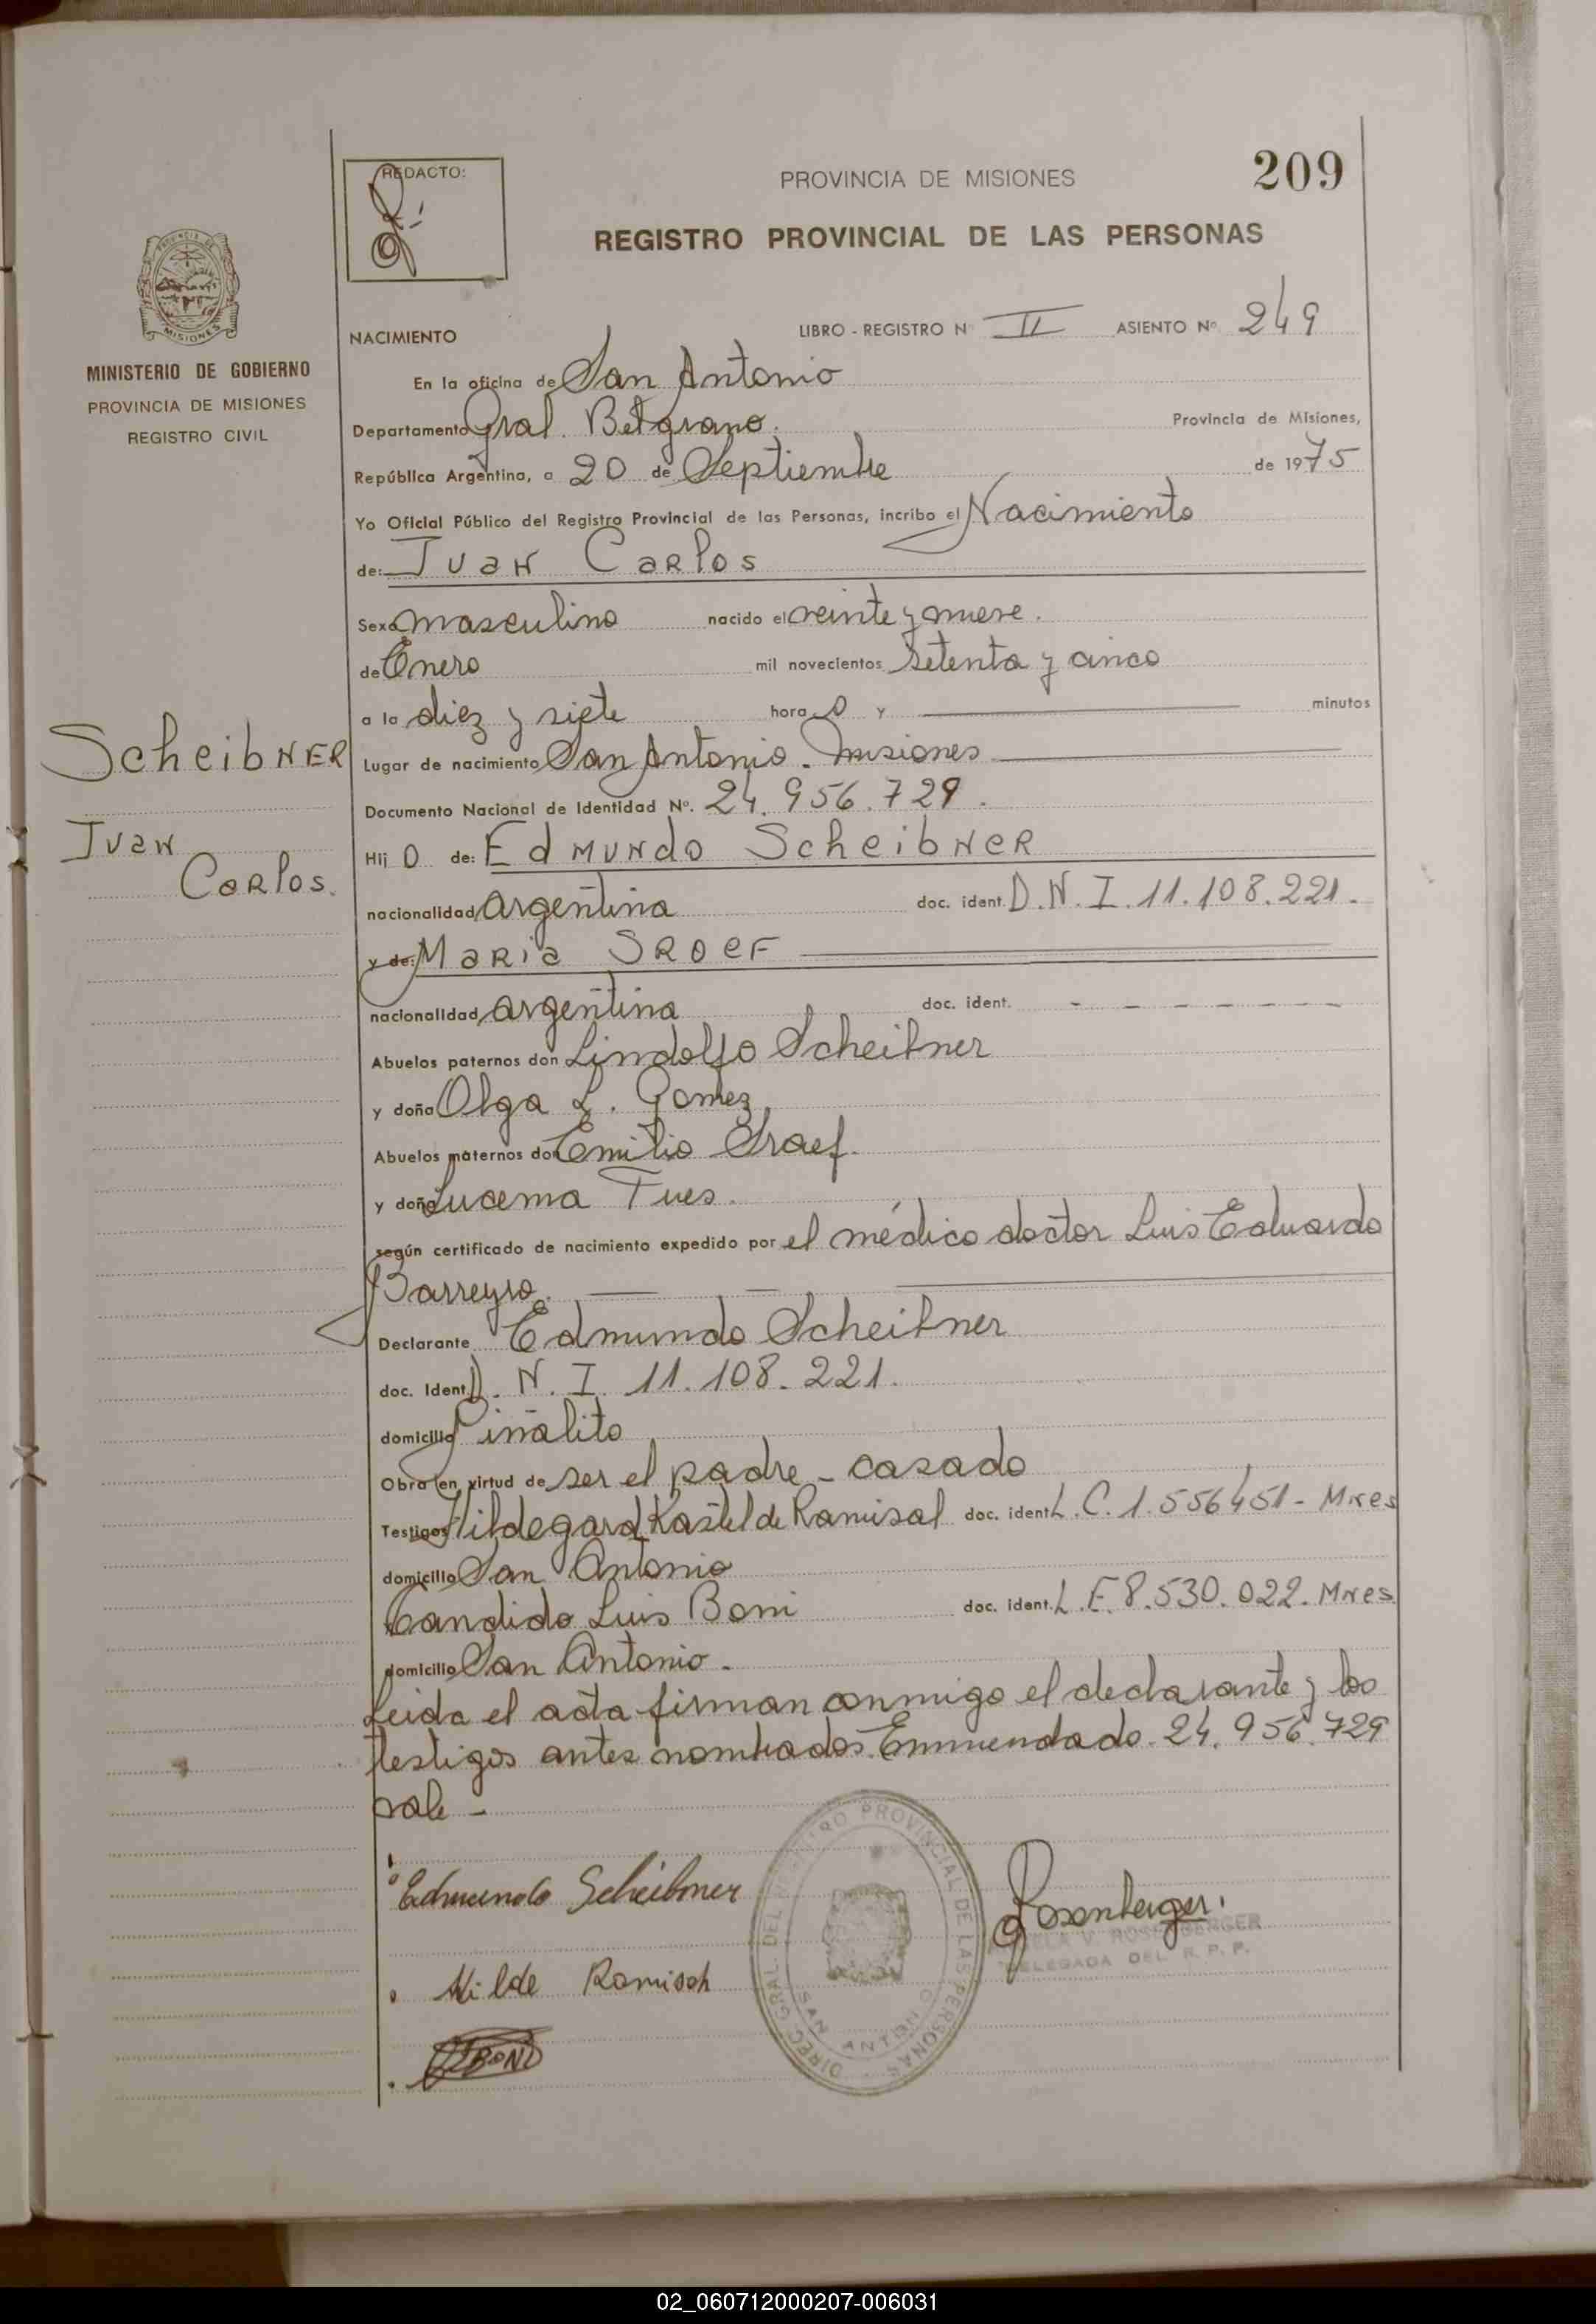 209
REDACTO:
PROVINCIA DE MISIONES
REGISTRO PROVINCIAL DE LAS PERSONAS
MISIONES
MINISTERIO DE GOBIERNO
PROVINCIA DE MISIONES
REGISTRO CIVIL
NACIMIENTO LIBRO - REGISTRO Nº II ASIENTO Nº 249
En la oficina de San Antonio
Departamento Gral. Belgrano. Provincia de Misiones,
República Argentina, a 20 de Septiembre de 1975
Yo Oficial Público del Registro Provincial de las Personas, incribo el Nacimiento
de: Juan Carlos
Sexo masculino nacido el veinte y nueve.
de Enero mil novecientos setenta y cinco
a la diez y siete hora o y minutos
Scheibner
Lugar de nacimiento San Antonio. Misiones
Documento Nacional de Identidad Nº. 24.956.729.
Juan
Carlos.
Hij o de: Edmundo Scheibner
nacionalidad argentina doc. ident. D.N.I. 11.108.221.
y de: Maria Sroef
nacionalidad argentina doc. ident. - - - - - -
Abuelos paternos don Lindolfo Scheibner
y doña Olga L. Gomez
Abuelos maternos don Emilio Sraef.
y doña Lucema Tues.
según certificado de nacimiento expedido por el médico doctor Luis Eduardo
Barreyro.
Declarante Edmundo Scheibner
doc. Ident. D.N.I. 11.108.221.
domicilio Piñalito
Obra en virtud de ser el padre - casado
Testigos Hildegard Kastel de Ramisal doc. ident. L.C. 1.556451 - Mnes
domicilio San Antonio
Candido Luis Boni doc. ident. L.E. 8.530.022. Mnes
domicilio San Antonio.
Leida el acta firman conmigo el declarante y los
testigos antes nombrados. Enmendado. 24.956.729
vale -
Edmundo Scheibner
Rosenberger.
V. ROSENBERGER
DELEGADA DEL R. P. P.
Hilde Ramisch
BONI
DIREC. GRAL. DEL REGISTRO PROVINCIAL DE LAS PERSONAS
SAN ANTONIO
02_060712000207-006031